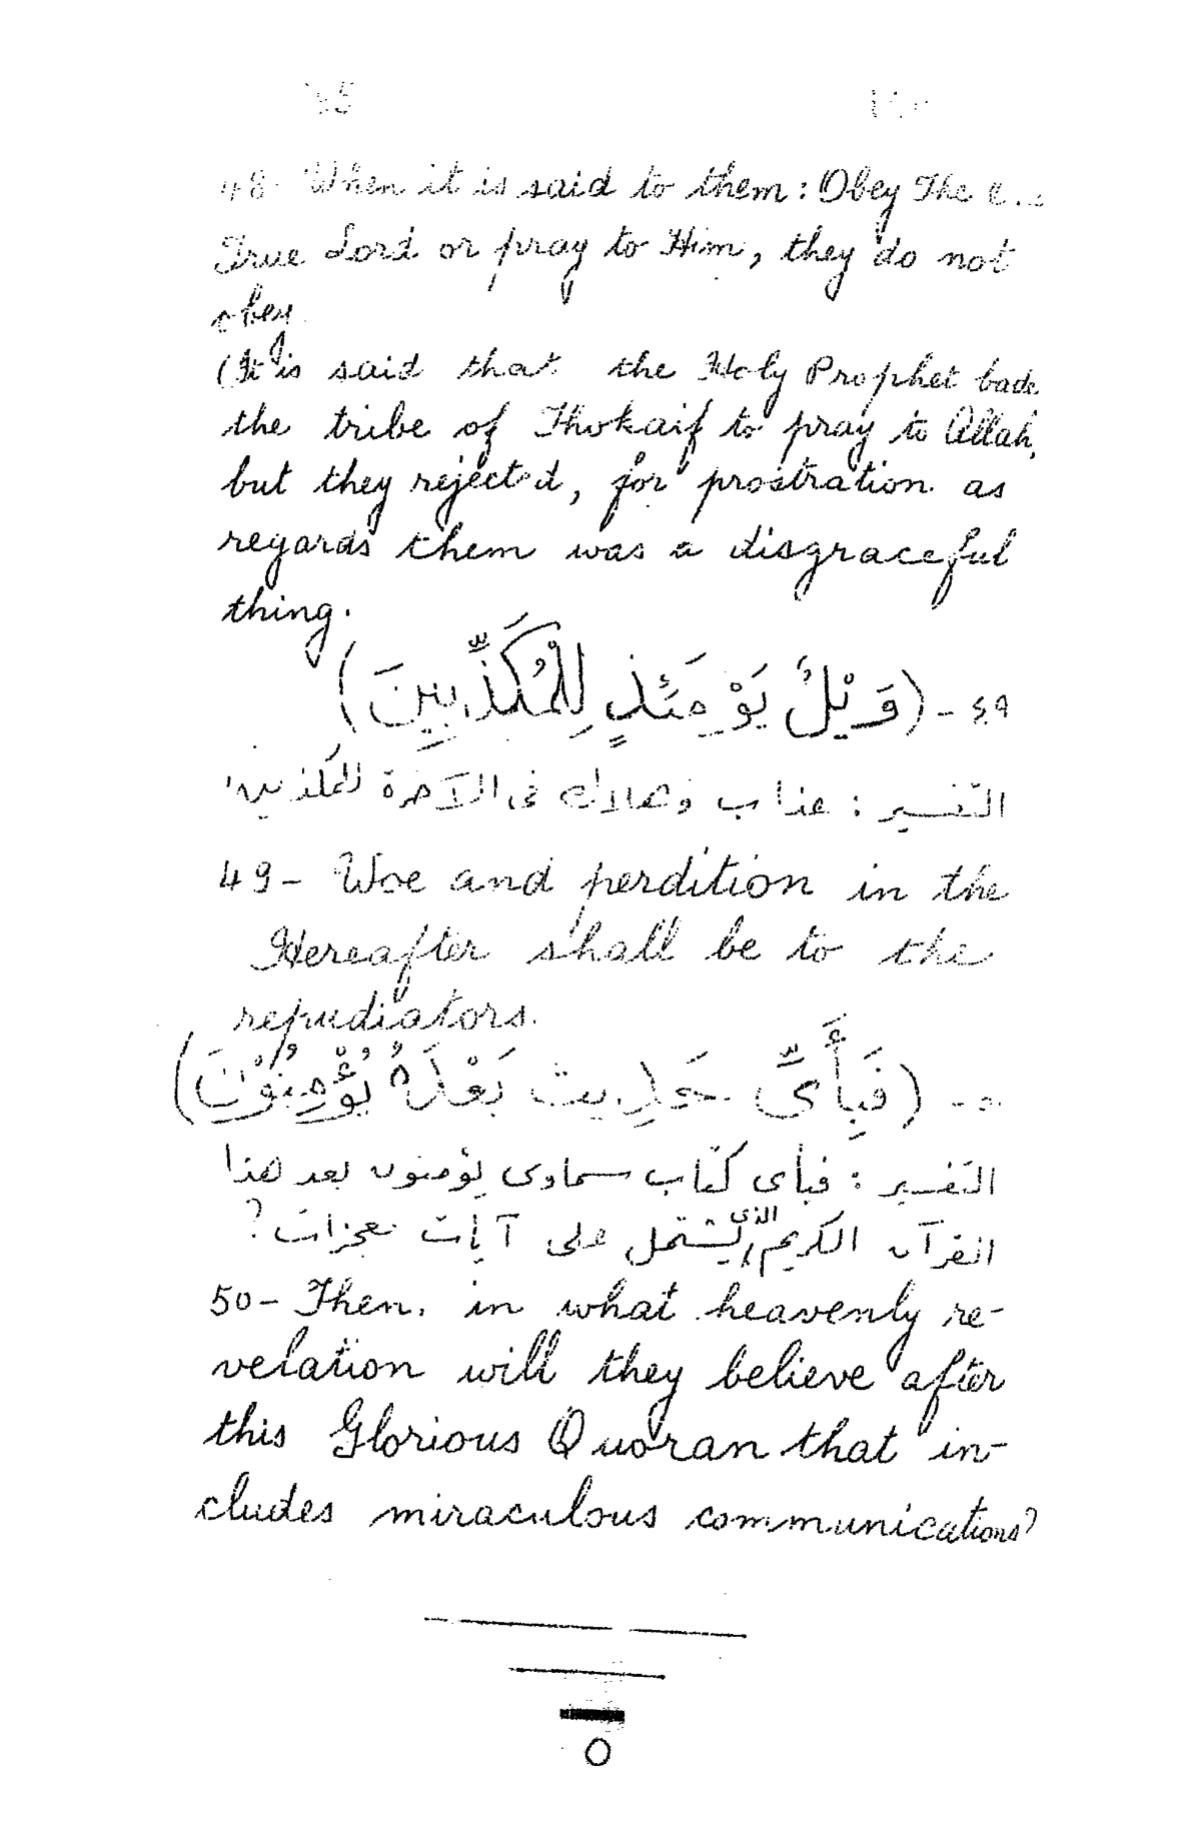 48- When it is said to them: Obey The
True Lord or pray to Him, they do not
obey.
(It is said that the Holy Prophet bade
the tribe of Thokaif to pray to Allah,
but they rejected, for prostration as
regards them was a disgraceful
thing.
٤٩- (وَيْلٌ يَوْمَئذٍ لِلْمُكَذِّبِينَ)
التفسير : عذاب وهلاك فى الآخرة للمكذبين
49- Woe and perdition in the
Hereafter shall be to the
repudiators.
٥٠- (فَبِأَىِّ حَدِيث بَعْدَهُ يُؤْمِنُوْنَ)
التفسير : فبأى كتاب سماوى يؤمنون بعد هذا
القرآن الكريم الذى يشتمل على آيات معجزات؟
50- Then, in what heavenly re-
velation will they believe after
this Glorious Quoran that in-
cludes miraculous communications?